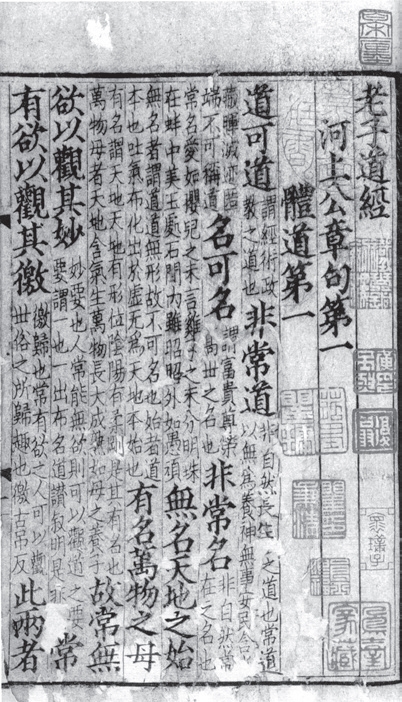 老子道經
河上公章句第一
體道第一
道可道 謂經術政教之道也 非常道 非自然長生之道也常道以無為養神無事安民含光
藏暉滅迹匿端不可稱道 名可名 謂富貴尊榮高世之名也 非常名 非自然常在之名也
常名愛如嬰兒之未言雞子之未分明珠在蚌中美玉處石間內雖昭昭外如愚頑 無名天地之始
無名者謂道道無形故不可名也始者道本也吐氣布化出於虛無為天地本始也 有名萬物之母
有名謂天地天地有形位陰陽有柔剛是其有名也萬物母者天地含氣生萬物長大成熟如母之養子 故常無
欲以觀其妙 妙要也人常能無欲則可以觀道之要要謂一也一出布名道讚叙明是非 常
有欲以觀其徼 徼歸也常有欲之人可以觀世俗之所歸趣也徼古吊反 此兩者